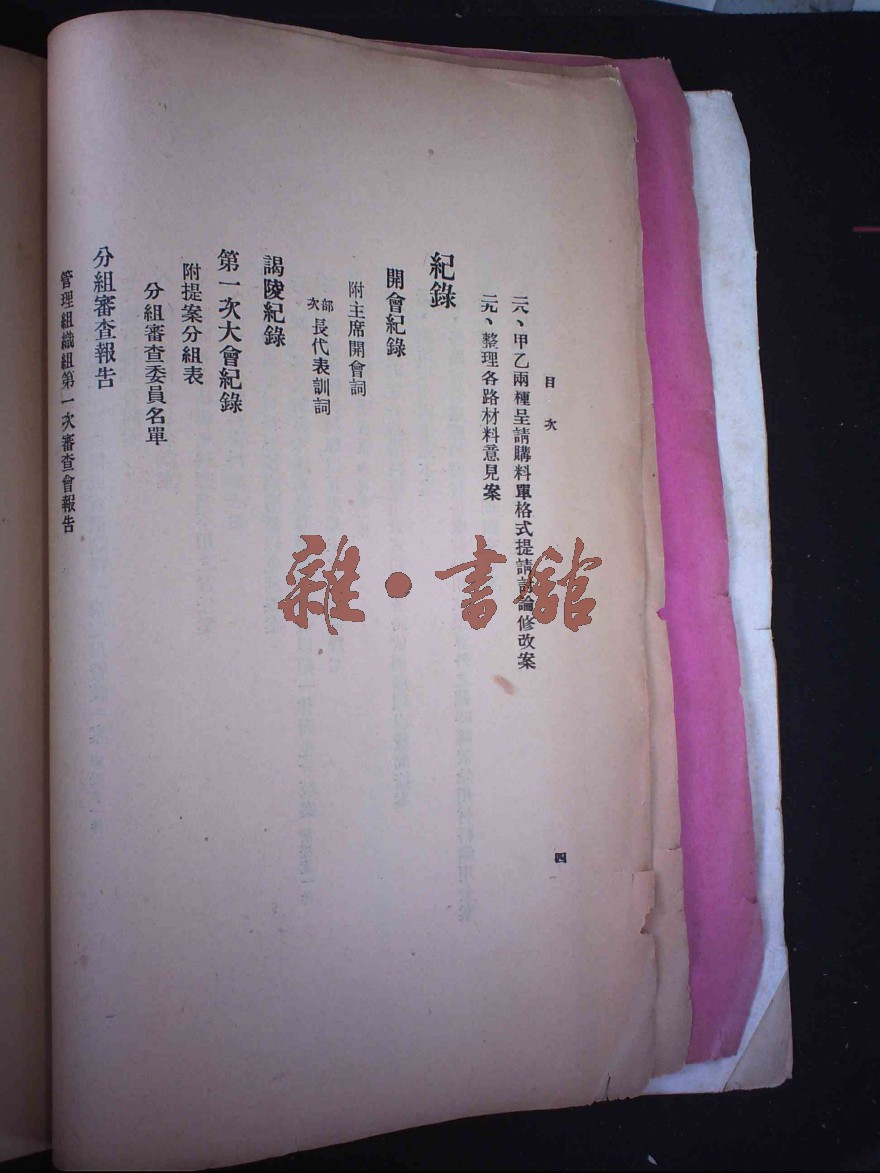 目次
二八、甲乙兩種呈請購料單格式提請討論修改案
二九、整理各路材料意見案
紀錄
開會紀錄
附主席開會詞
部次長代表訓詞
謁陵紀錄
第一次大會紀錄
附提案分組表
分組審查委員名單
分組審查報告
管理組織組第一次審查會報告
四
雜·書館